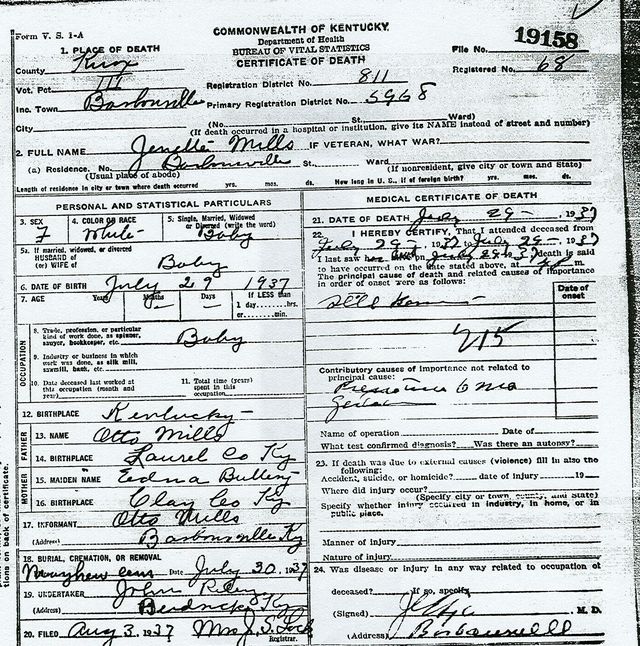 Form V. S. 1-A
COMMONWEALTH OF KENTUCKY
Department of Health
BUREAU OF VITAL STATISTICS
CERTIFICATE OF DEATH
File No. 19158
Registered No. 68
1. PLACE OF DEATH
County Knox
Vot. Pct. III
Registration District No. 811
Inc. Town Barbourville Primary Registration District No. 5968
City (No. St. Ward)
(If death occurred in a hospital or institution, give its NAME instead of street and number)
2. FULL NAME Jenette Mills IF VETERAN, WHAT WAR?
(a) Residence. No. Barbourville St., Ward
(Usual place of abode) (If nonresident, give city or town and State)
Length of residence in city or town where death occurred yrs. mos. ds. How long in U. S., if of foreign birth? yrs. mos. ds.
PERSONAL AND STATISTICAL PARTICULARS
3. SEX F
4. COLOR OR RACE White
5. Single, Married, Widowed
or Divorced (write the word)
Baby
5a. If married, widowed, or divorced
HUSBAND of
(or) WIFE of Baby
6. DATE OF BIRTH July 29 1937
7. AGE Years Months Days If LESS than
1 day, hrs.
or min.
OCCUPATION
8. Trade, profession, or particular
kind of work done, as spinner,
sawyer, bookkeeper, etc. Baby
9. Industry or business in which
work was done, as silk mill,
sawmill, bank, etc.
10. Date deceased last worked at
this occupation (month and
year)
11. Total time (years)
spent in this
occupation
12. BIRTHPLACE Kentucky
FATHER
13. NAME Otto Mills
14. BIRTHPLACE Laurel Co Ky
MOTHER
15. MAIDEN NAME Edna
16. BIRTHPLACE Clay Co Ky
17. INFORMANT Otto Mills
(Address) Barbourville Ky
18. BURIAL, CREMATION, OR REMOVAL
Mayhew cem Date July 30, 1937
19. UNDERTAKER John Riley
(Address) Ky
20. FILED Aug 3, 1937 Mrs J. S. Lock
Registrar.
MEDICAL CERTIFICATE OF DEATH
21. DATE OF DEATH July 29 - , 1937
22. I HEREBY CERTIFY, That I attended deceased from
July 29, 1937 to July 29 - 1937
I last saw her alive on July 29 1937 death is said
to have occurred on the date stated above, at m.
The principal cause of death and related causes of importance
in order of onset were as follows:
Date of
onset
215
Contributory causes of importance not related to
principal cause:
Premature 6 mo
Name of operation Date of
What test confirmed diagnosis? Was there an autopsy?
23. If death was due to external causes (violence) fill in also the
following:
Accident, suicide, or homicide? date of injury 19
Where did injury occur?
(Specify city or town, county, and State)
Specify whether injury occurred in industry, in home, or in
public place.
Manner of injury
Nature of injury
24. Was disease or injury in any way related to occupation of
deceased? If so, specify
(Signed) M. D.
(Address) Barbourville
tions on back of certificate.